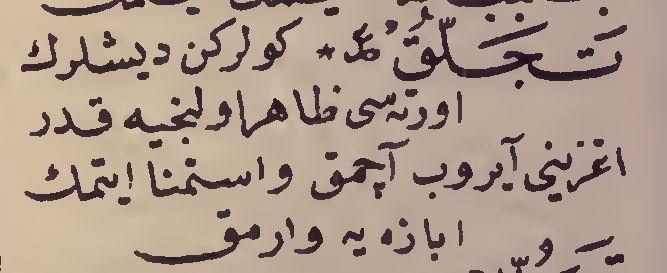 تَجَلُّقْ * كولركن ديشلرك
اورته‌سى ظاهر اولنجيه قدر
اغزينى آيروب آچمق واستمنا ايتمك
ابازه‌يه وارمق